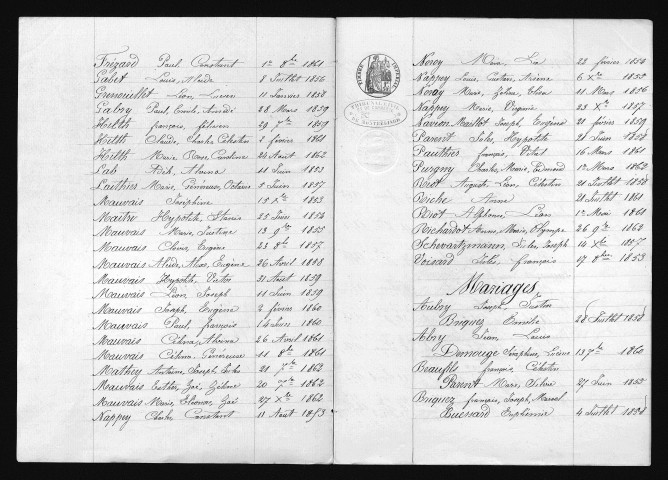 Frézard Paul Constant 1er 8bre 1861
Gabet Louis, Alcide 8 Juillet 1856
Grenouillet Léon Lucien 11 Janvier 1858
Gabry Paul, Emile, Amédé 28 Mars 1859
Hilth françois, félicien 29 7bre 1859
Hilth Claude, Charles Célestin 2 février 1861
Hilth Marie Rose Caroline 24 Août 1862
Lab 11 Juin 1853
Lauthier Marie, Octavie 5 Juin 1857
Mauvais Joséphine 15 Xbre 1853
Maitre Hypolite, Stanis 25 Juin 1854
Mauvais Marie, Justine 13 9bre 1855
Mauvais Eugène 23 8bre 1857
Mauvais Alcide, Aloïs, Eugène 26 Avril 1858
Mauvais Hypolite, Victor 31 Août 1859
Mauvais Léon Joseph 11 Juin 1859
Mauvais Joseph, Eugène 2 février 1860
Mauvais Paul, françois 14 Juin 1860
Mauvais Célina, Albina 26 Avril 1861
Mauvais Célina, Généreuse 11 8bre 1861
Mathey Antoine, Joseph 21 7bre 1862
Mauvais Esther, Zoé, Zélina 20 7bre 1862
Mauvais Marie, Eléonor, Zoé 27 Xbre 1862
Nappey Charles Constant 11 Août 1853
Nerey 22 février 1854
Nappey Louis, Gustave, Arsène 6 Xbre 1855
Neray Marie, Zéline, Elisa 11 Mars 1856
Nappey Marie, Virginie 23 Xbre 1857
Navion Joseph, Eugène 21 février 1859
Parent Jules, Hypolite 21 Juin 1858
Pauthier françois, Vital 16 Mars 1861
Purgny Charles, Marie, Edmond 1er Mars 1862
Brot Auguste, Léon, Célestin 21 Juillet 1858
Riche Anne 21 Juillet 1861
Brot Alphonse, Léon 1er Mai 1861
Richardot Anne, Marie, Olympe 26 9bre 1862
Schwartzmann Jules, Joseph 14 Xbre 1857
Voisard Jules, françois 17 8bre 1853
Mariages
Aubry Joseph Justin
Briquez Emélie 28 Juillet 1858
Abry Jean Louis
Demouge Séraphine, Lucine 13 7bre 1860
Beaufils françois, Célestin
Parent Marie, Silvie 27 Juin 1853
Briquez françois, Joseph, Marcel
Buessard Euphémie 4 Juillet 1858